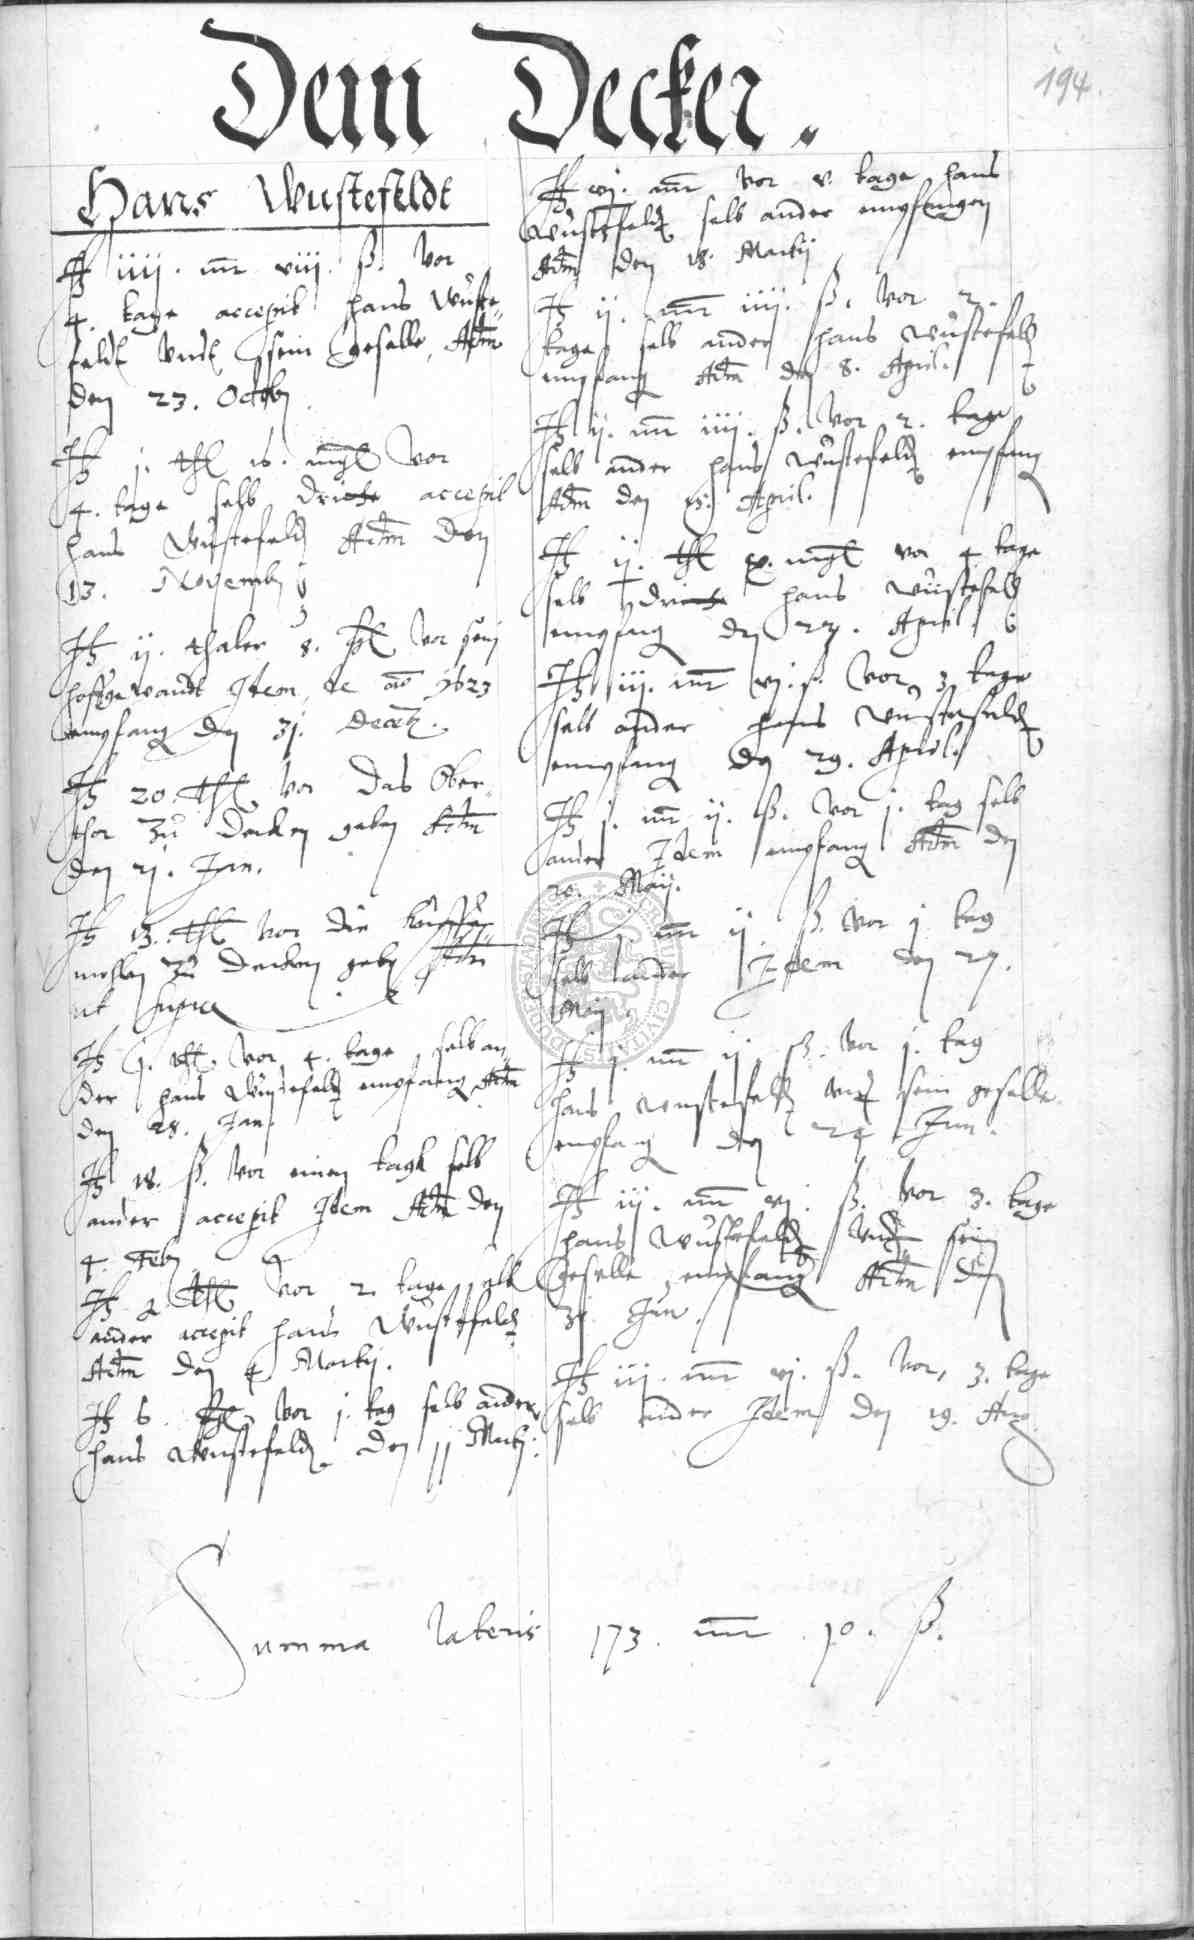 194.
Dem Decker.
Hans Wustefeldt
It iiij. mr viij. ß. vor
4. tage accepit hans Wuste„
feldt vndt sein geselle, Actm
den 23. Octob
It j. thl 16. mgl vor
4. tage selb dritte accepit
hans Wustefeldt Actm den
13. Novemb
It ij. thaler 8. ßl vor sein
hoffgewandt Idem de ao 1623
empfang den 31. Decemb.
It 20. thl vor das Ober„
thor zu decken geben Actm
den 21. Jan.
It 13. thl vor die
mohlen zu decken geben Actm
ut supra
It j. thl. vor 4. tage selb an„
der hans Wustefeldt empfang Actm
den 28. Jan.
It 18. ß. vor einen tagk selb
ander accepit Idem Actm den
4. Feb
It 2 thl vor 2. tage selb
ander accepit hans Wustefeldt
Actm den 4 Martij.
It 6. vor j. tag selb ander
hans Wustefeldt den 11 Martij:
It vj. mr vor v. tage hans
Wustefeldt selb ander empfangen
Actm den 18. Martij
It ij. mr iiij. ß. vor 2.
tage selb ander hans Wustefeldt
empfang Actm den 8. April.
It ij. mr iiij. ß. vor 2. tage
selb ander hans Wustefeldt empfang
Actm den 15. April.
It ij. thl mgl vor 4 tage
selb dritte hans Wustefeldt
empfang den 27. April.
It iij. mr vj. ß. vor 3 tage
selb ander hans Wustefeldt
empfang den 29. April.
It j. mr ij. ß. vor j. tag selb
ander Idem empfang Actm den
20. Maij.
It j. mr ij. ß. vor j tag
selb ander Idem den 27.
Maij.
It j. mr ij ß. vor j. tag
hans Wustefeldt vndt sein geselle
empfang den 24 Jun.
It iij. mr vj. ß. vor 3. tage
hans Wustefeldt vndt sein
geselle empfang Actm den
31 Jun.
It iij. mr vj. ß. vor, 3. tage
selb ander Idem den 19. Aug.
Summa lateris 173. mr 10. ß.